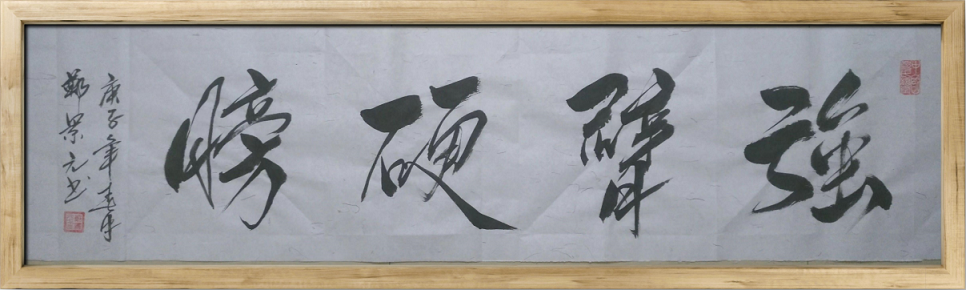 強臂硬膀
庚子年春月
鄭景元书